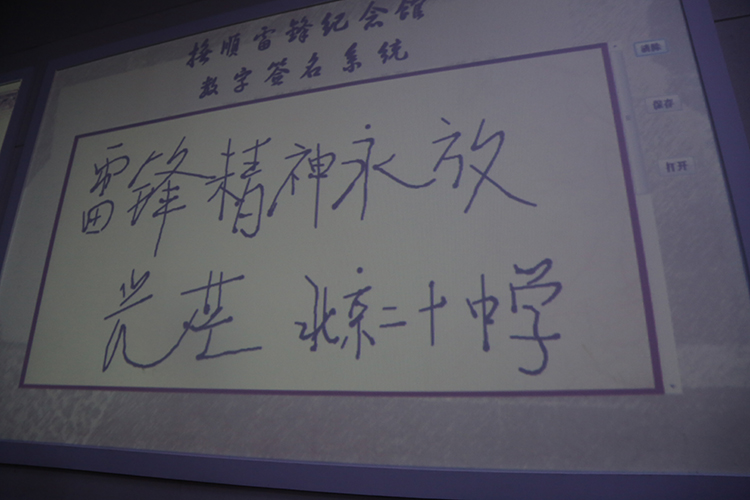 抚顺雷锋纪念馆
数字签名系统
雷锋精神永放
光芒 北京二十中学
保存
打开